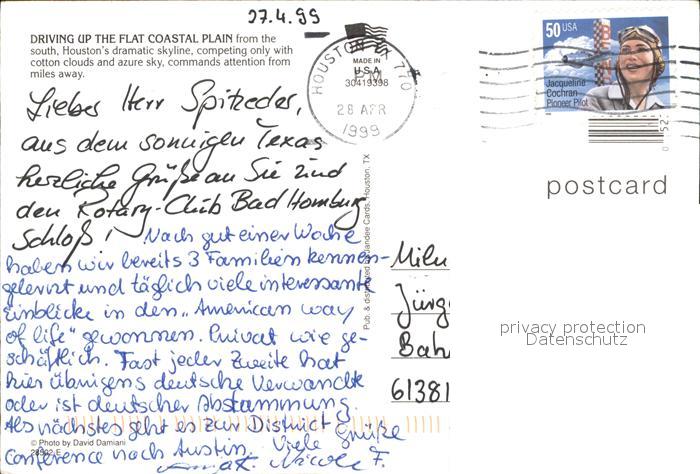 27.4.99
DRIVING UP THE FLAT COASTAL PLAIN from the
south, Houston's dramatic skyline, competing only with
cotton clouds and azure sky, commands attention from
miles away.
MADE IN
U.S.A.
30419398
HOUSTON TX 770
PM
28 APR
1999
50 USA
Jacqueline
Cochran
Pioneer Pilot
postcard
Lieber Herr Spitzeder,
aus dem sonnigen Texas
herzliche Grüße an Sie und
den Rotary-Club Bad Homburg
Schloß!
Nach gut einer Woche
haben wir bereits 3 Familien kennen-
gelernt und täglich viele interessante
Einblicke in den „American way
of life" gewonnen. Privat wie ge-
schäftlich. Fast jeder Zweite hat
hier übrigens deutsche Verwandte
oder ist deutscher Abstammung.
Als nächstes geht es zur District
Conference nach Austin. Viele Grüße
Nicole F.
© Photo by David Damiani
Houston, TX
Jürg
Bah
61381
privacy protection
Datenschutz